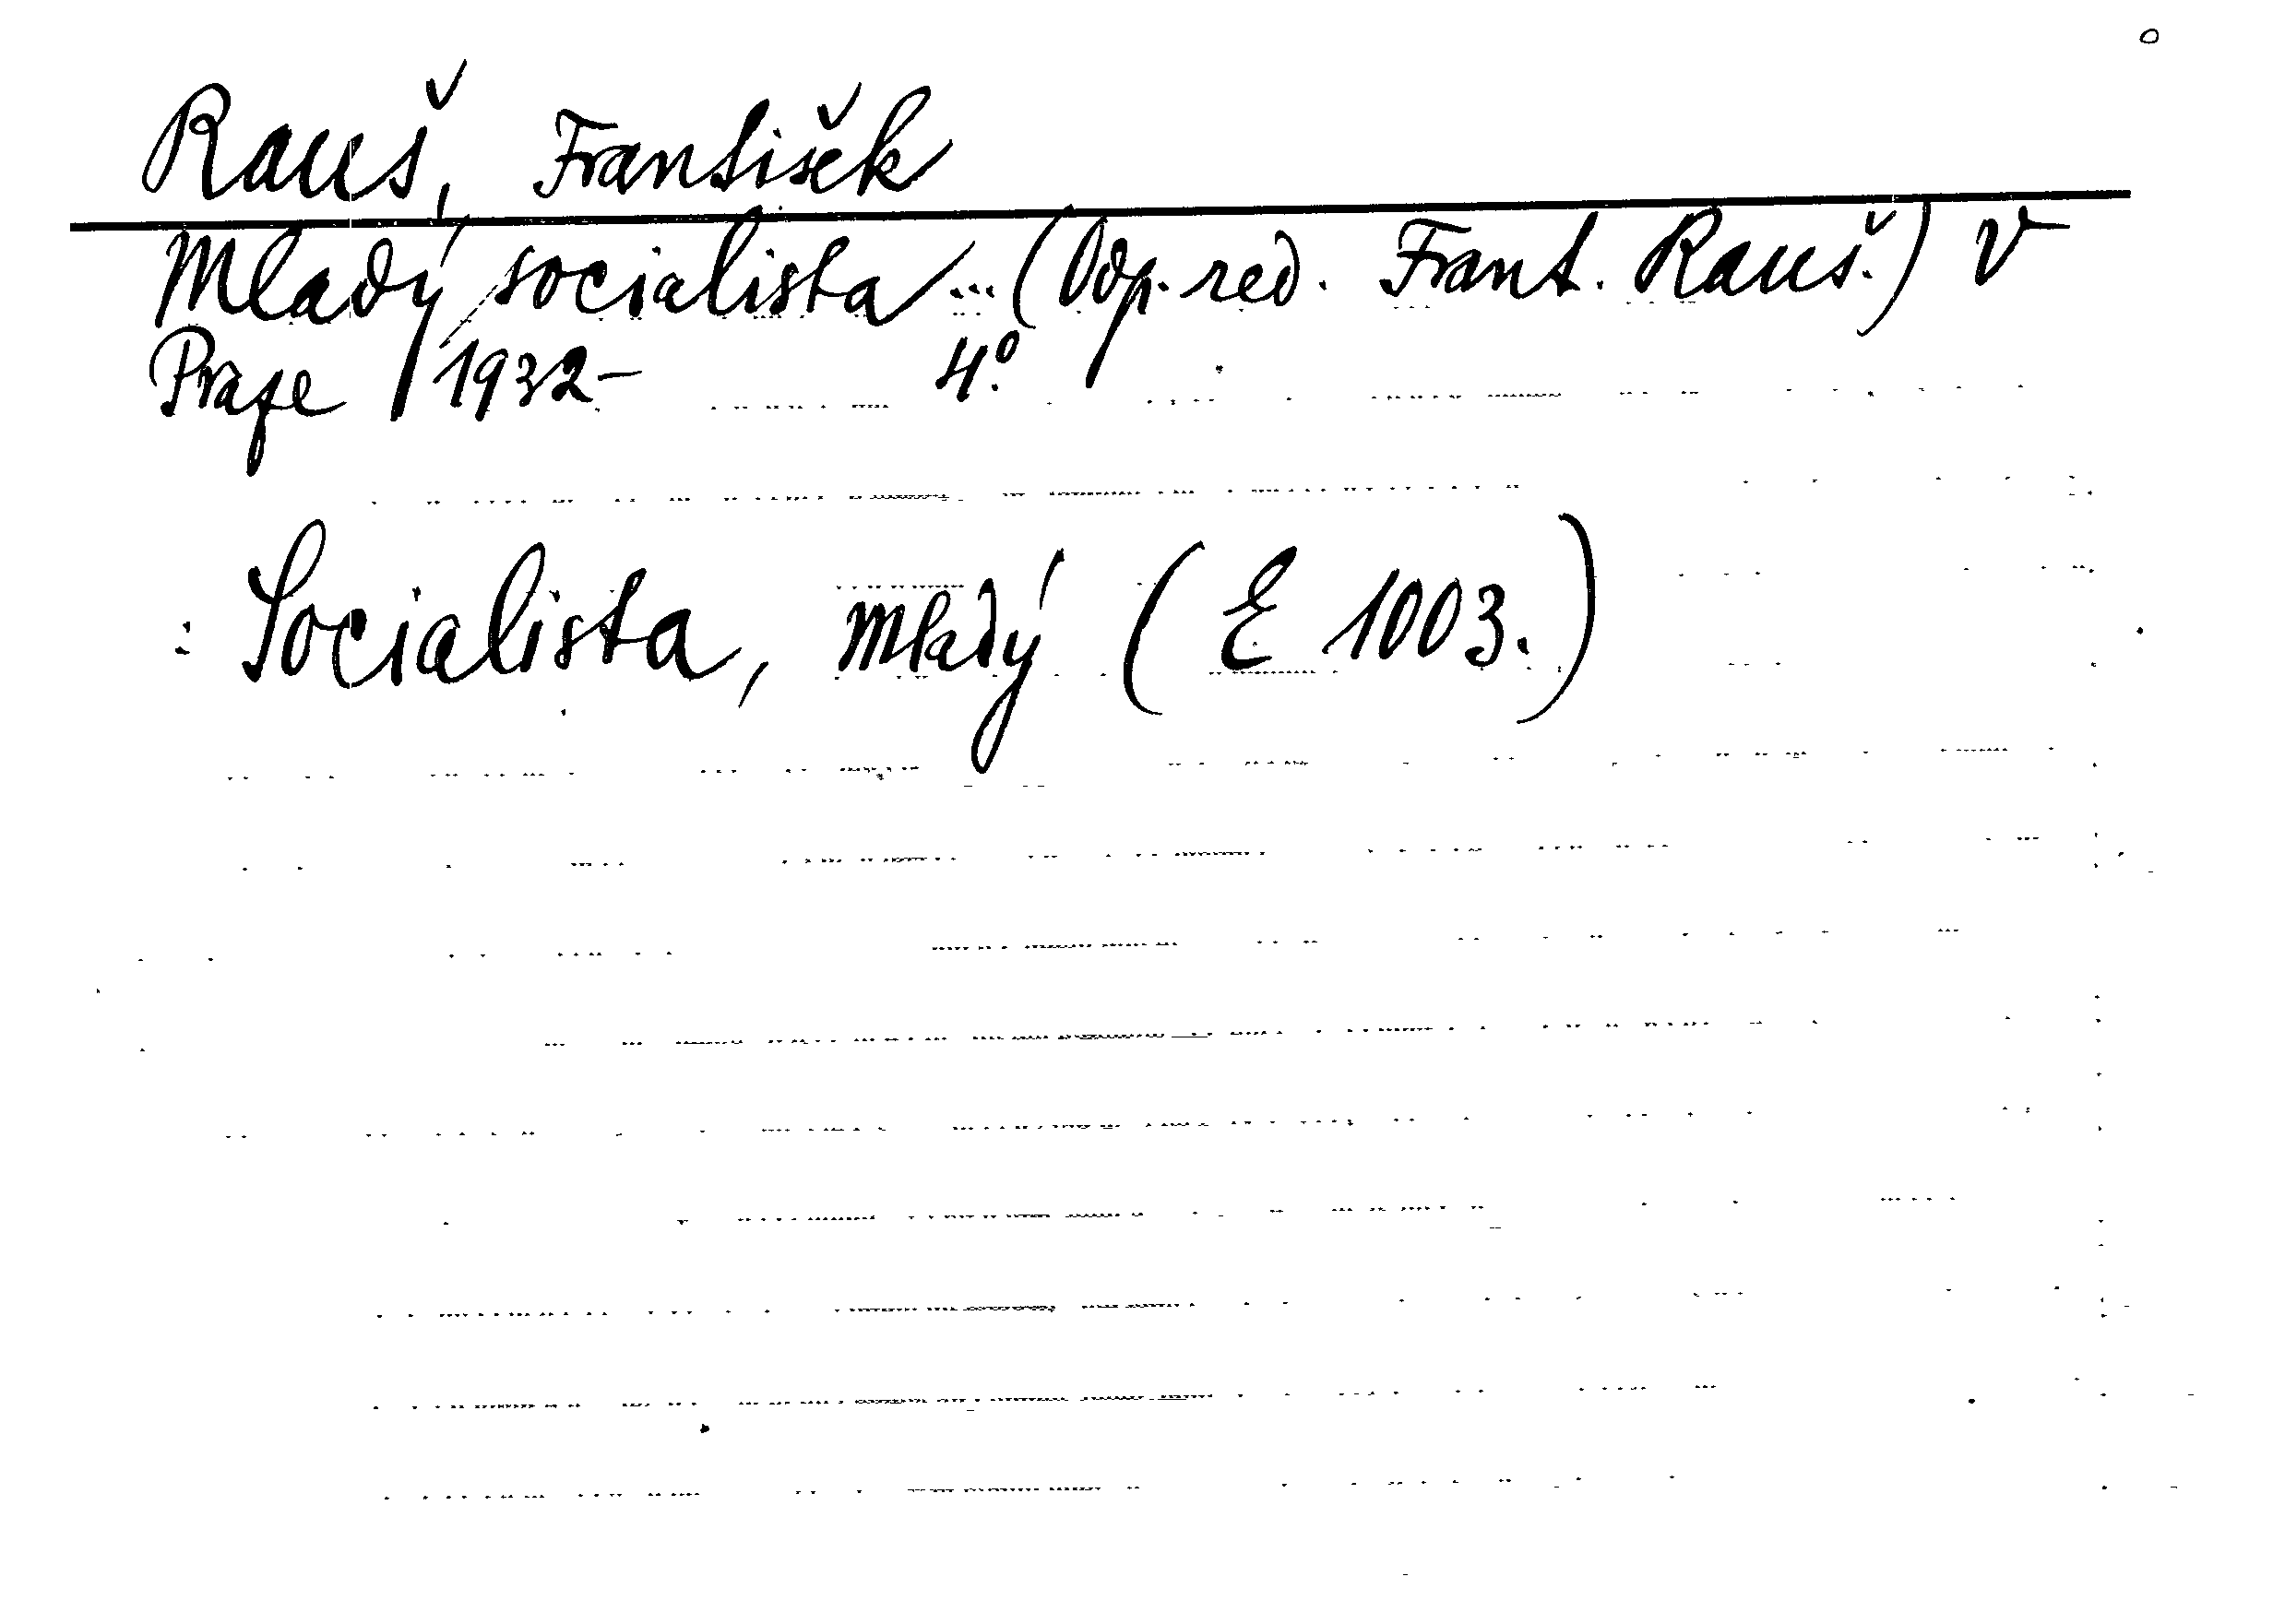 Rauš, František
Mladý socialista ... (Odp. red. Frant. Rauš.) V
Praze 1932- 4°.
: Socialista, mladý (E 1003.)